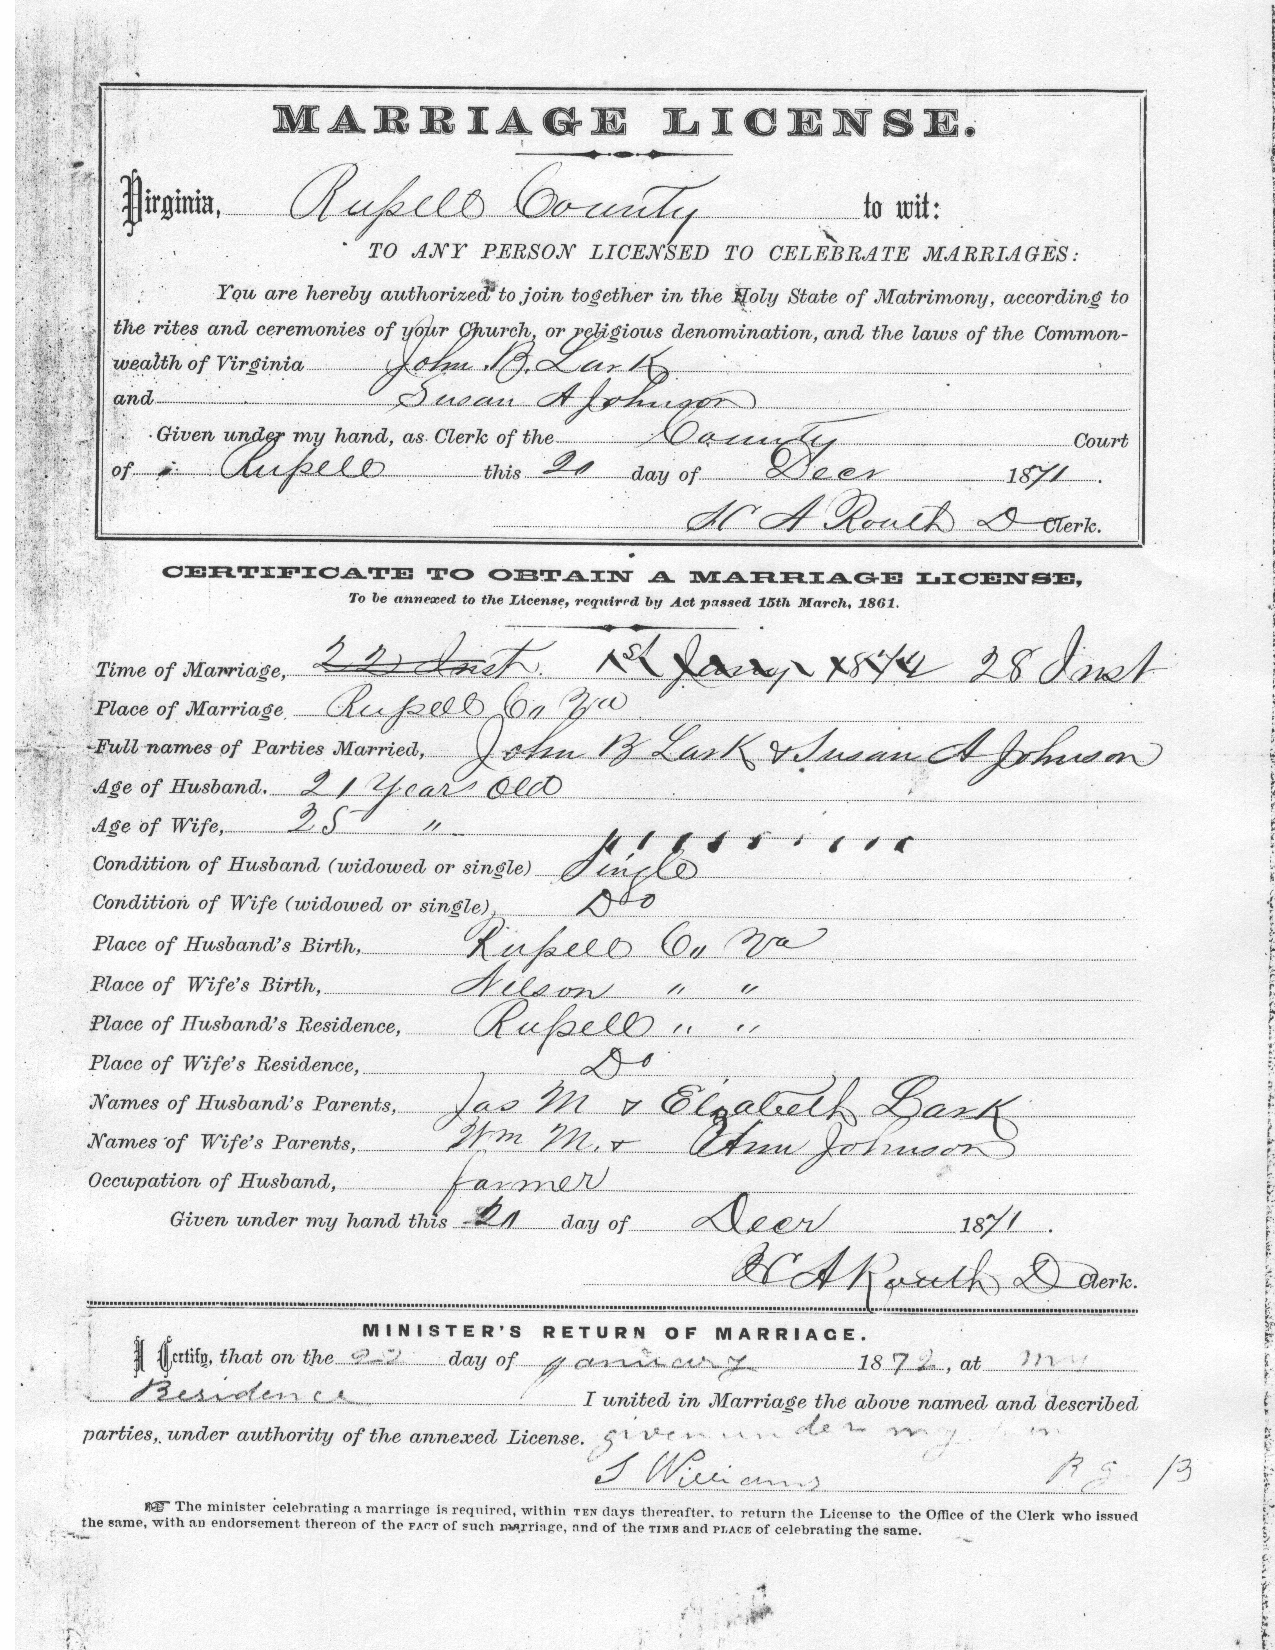 MARRIAGE LICENSE.
Virginia, Russell County to wit:
TO ANY PERSON LICENSED TO CELEBRATE MARRIAGES:
You are hereby authorized to join together in the Holy State of Matrimony, according to
the rites and ceremonies of your Church, or religious denomination, and the laws of the Common-
wealth of Virginia John B. Lark
and Susan A Johnson
Given under my hand, as Clerk of the County Court
of Russell this 20 day of Decr 1871.
W A Routh D Clerk.
CERTIFICATE TO OBTAIN A MARRIAGE LICENSE,
To be annexed to the License, required by Act passed 15th March, 1861.
Time of Marriage, 22 Inst. 1st Jany, 1872 28 Inst
Place of Marriage Russell Co Va
Full names of Parties Married, John B Lark & Susan A Johnson
Age of Husband. 21 Years Old
Age of Wife, 25 "
Condition of Husband (widowed or single) Single
Condition of Wife (widowed or single), Do
Place of Husband's Birth, Russell Co Va
Place of Wife's Birth, Nelson " "
Place of Husband's Residence, Russell " "
Place of Wife's Residence, Do
Names of Husband's Parents, Jas M & Elizabeth Lark
Names of Wife's Parents, Wm M. & Ann Johnson
Occupation of Husband, farmer
Given under my hand this 20 day of Decr 1871.
W A Routh D Clerk.
MINISTER'S RETURN OF MARRIAGE.
I Certify, that on the day of january 1872, at my
Residence I united in Marriage the above named and described
parties, under authority of the annexed License. given under my
S Williams
☞ The minister celebrating a marriage is required, within TEN days thereafter, to return the License to the Office of the Clerk who issued
the same, with an endorsement thereon of the FACT of such marriage, and of the TIME and PLACE of celebrating the same.